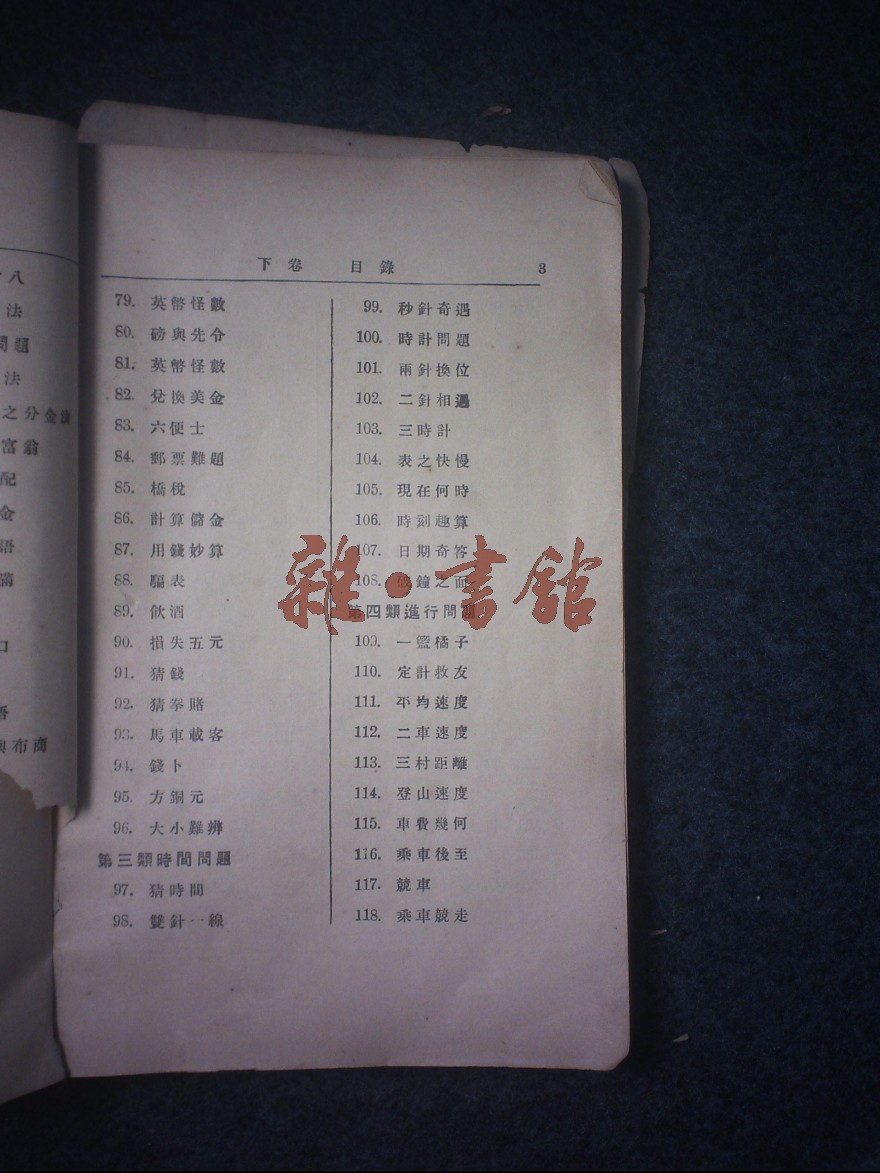 八
法
問題
法
之分金法
富翁
配
金
語
滿
口
語
與布商
下卷 目錄 3
79. 英幣怪數
80. 磅與先令
81. 英幣怪數
82. 兌換美金
83. 六便士
84. 郵票難題
85. 橋稅
86. 計算儲金
87. 用錢妙算
88. 騙表
89. 飲酒
90. 損失五元
91. 猜錢
92. 猜拳賭
93. 馬車載客
94. 錢卜
95. 方銅元
96. 大小難辨
第三類時間問題
97. 猜時間
98. 雙針一線
99. 秒針奇遇
100. 時計問題
101. 兩針換位
102. 二針相遇
103. 三時計
104. 表之快慢
105. 現在何時
106. 時刻趣算
107. 日期奇答
108. 破鐘之面
第四類進行問題
109. 一籃橘子
110. 定計救友
111. 平均速度
112. 二車速度
113. 三村距離
114. 登山速度
115. 車費幾何
116. 乘車後至
117. 競車
118. 乘車競走
雜·書館